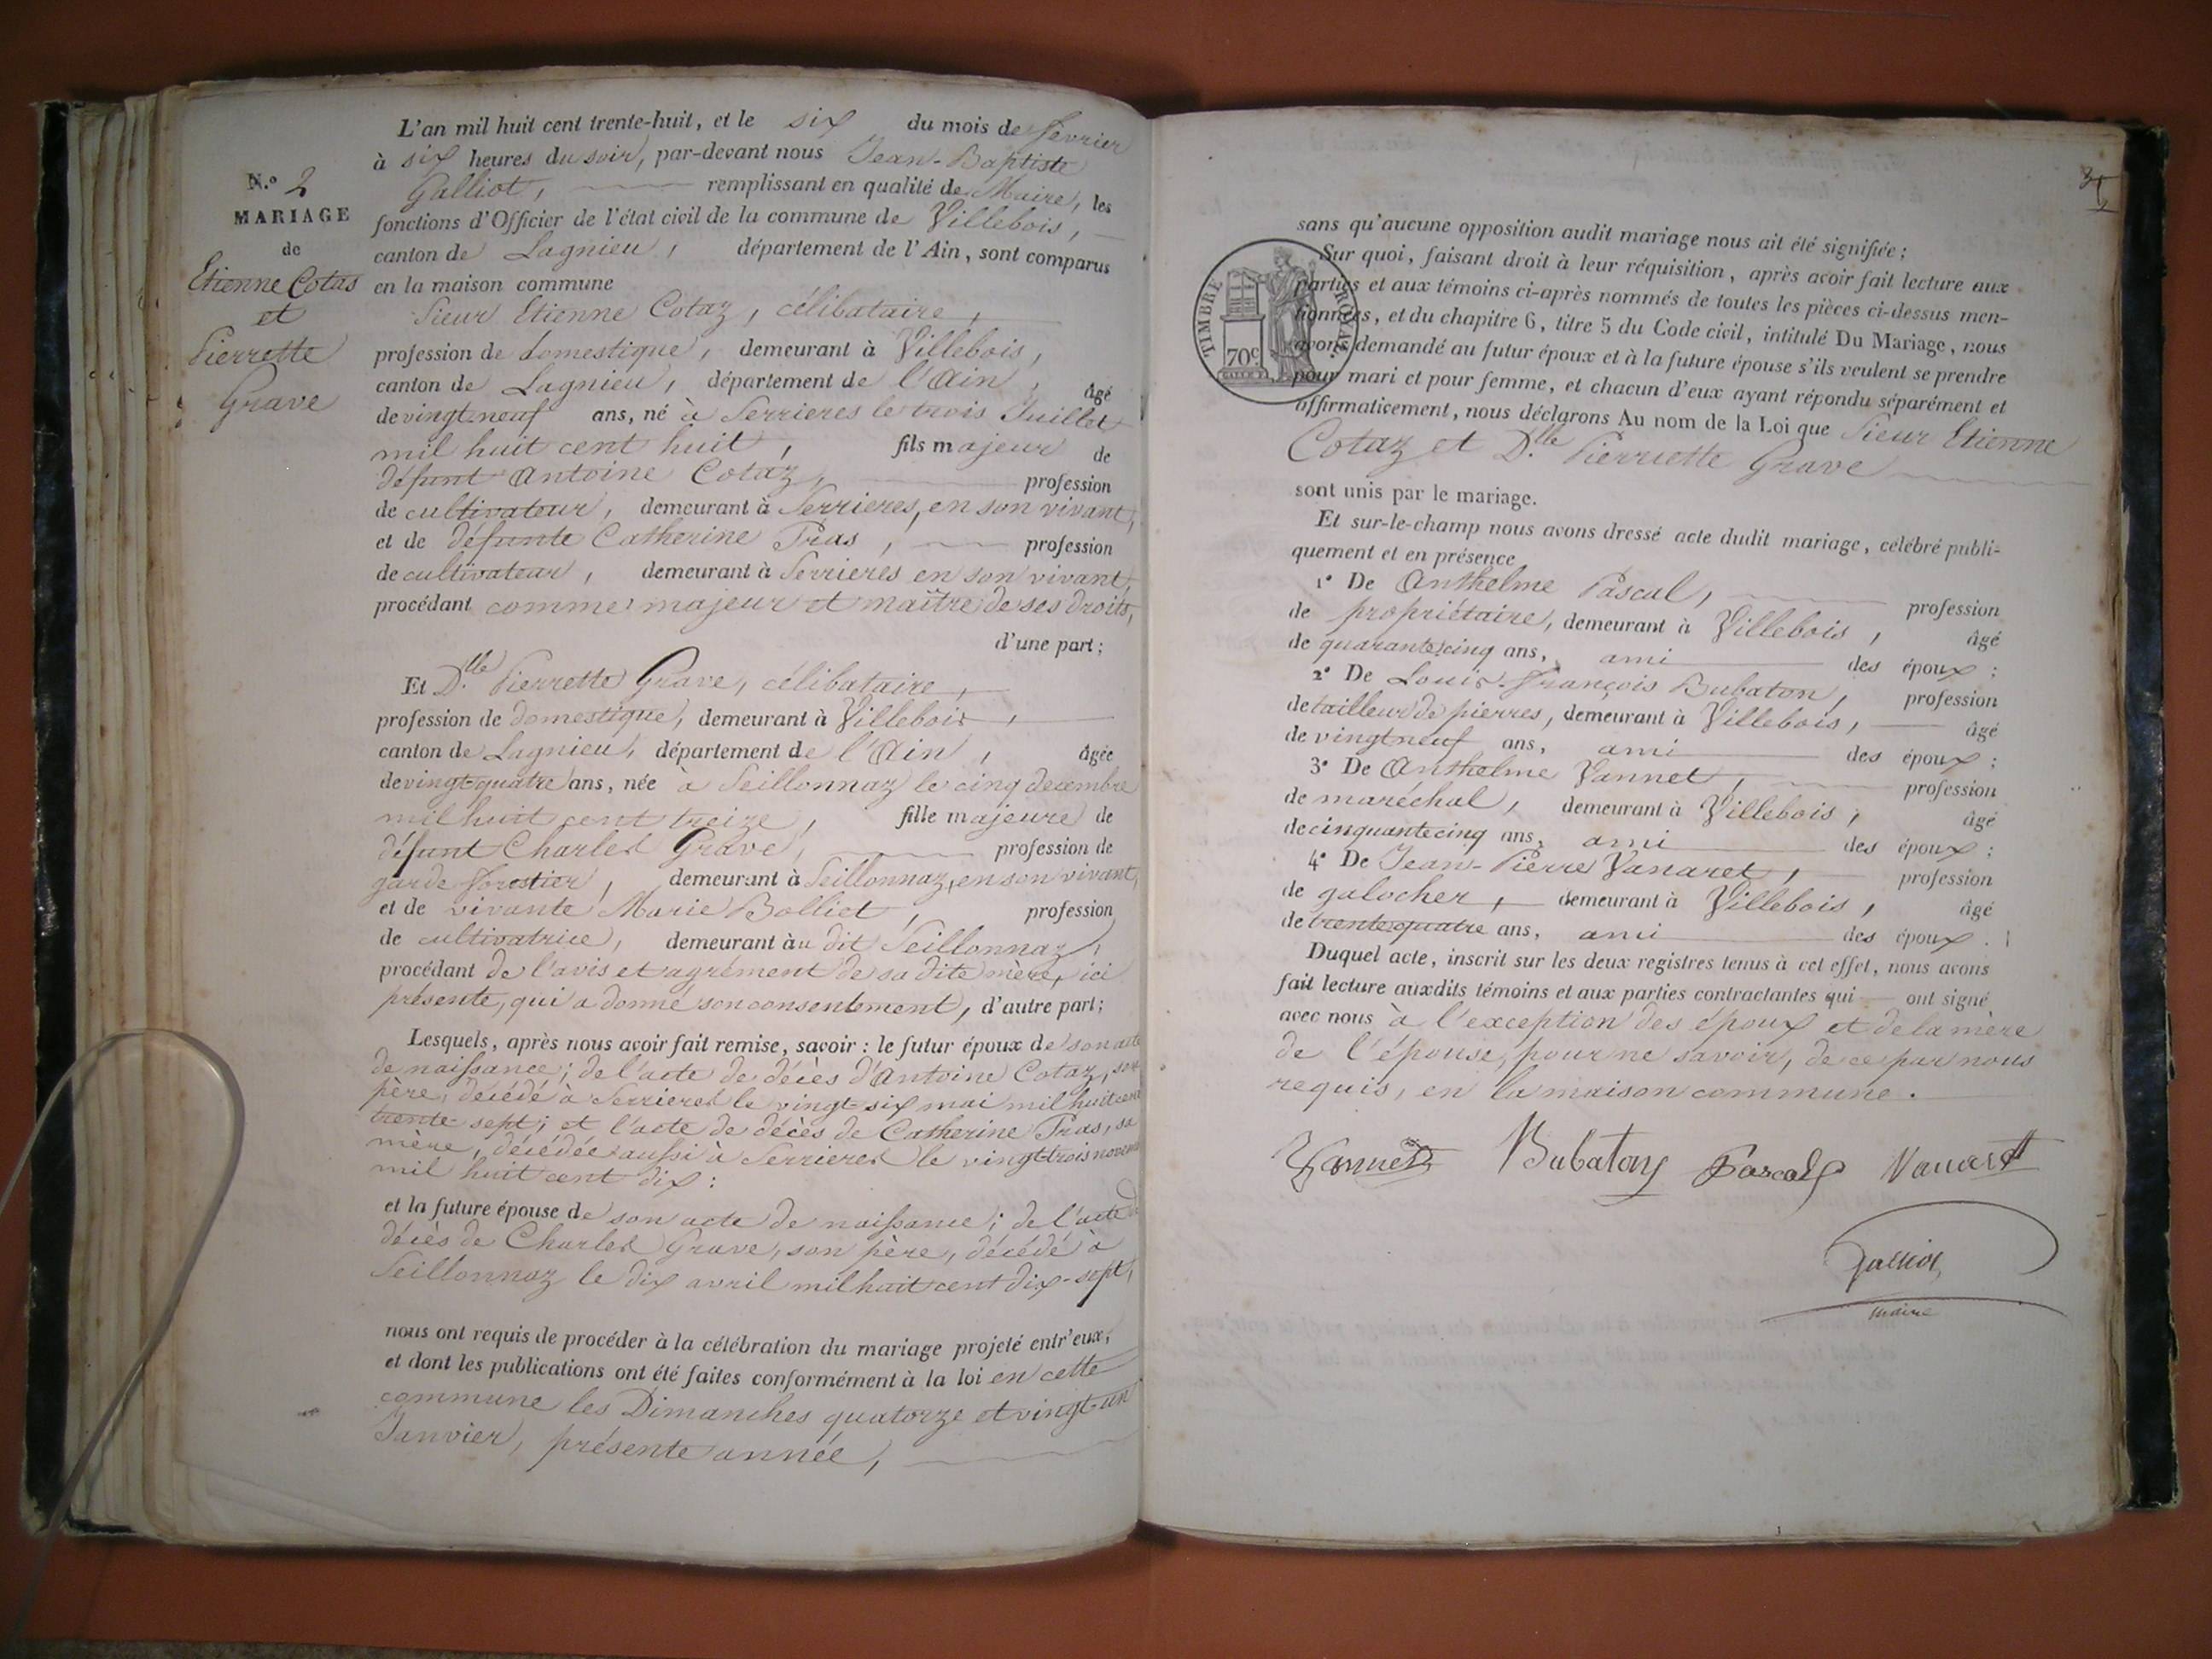 L'an mil huit cent trente-huit, et le six du mois de février
à six heures du soir, par-devant nous Jean-Baptiste
Galliot, remplissant en qualité de Maire, les
fonctions d'Officier de l'état civil de la commune de Villebois,
canton de Lagnieu, département de l'Ain, sont comparus
en la maison commune
N.º 2
MARIAGE
de
Etienne Cotas
et
Pierrette
Grave
Sieur Etienne Cotaz, célibataire,
profession de domestique, demeurant à Villebois,
canton de Lagnieu, département de l'Ain, âgé
de vingt-neuf ans, né à Serrieres le trois Juillet
mil huit cent huit, fils majeur de
défunt Antoine Cotaz, profession
de cultivateur, demeurant à Serrieres, en son vivant,
et de défunte Catherine Pras, profession
de cultivateur, demeurant à Serrieres en son vivant,
procédant comme majeur et maître de ses droits,
d'une part;
Et D.lle Pierrette Grave, célibataire,
profession de domestique, demeurant à Villebois,
canton de Lagnieu, département de l'Ain, âgée
de vingt-quatre ans, née à Seillonnaz le cinq decembre
mil huit cent treize, fille majeure de
défunt Charles Grave, profession de
garde forestier, demeurant à Seillonnaz, en son vivant,
et de vivante Marie Bolliet, profession
de cultivatrice, demeurant àu dit Seillonnaz,
procédant de l'avis et agrément de sa dite mère, ici
présente, qui a donné son consentement, d'autre part;
Lesquels, après nous avoir fait remise, savoir: le futur époux de son acte
de naissance; de l'acte de décès d'Antoine Cotaz, son
père, décédé à Serrieres le vingt-six mai mil huit cent
trente-sept; et l'acte de décès de Catherine Pras, sa
mère, décédée aussi à Serrieres le vingt-trois
mil huit cent dix:
et la future épouse de son acte de naissance; de l'acte de
décès de Charles Grave, son père, décédé à
Seillonnaz le dix avril mil huit cent dix-sept,
nous ont requis de procéder à la célébration du mariage projeté entr'eux,
et dont les publications ont été faites conformément à la loi en cette
commune les Dimanches quatorze et vingt-un
Janvier, présente année,
sans qu'aucune opposition audit mariage nous ait été signifiée;
Sur quoi, faisant droit à leur réquisition, après avoir fait lecture aux
parties et aux témoins ci-après nommés de toutes les pièces ci-dessus men-
tionnées, et du chapitre 6, titre 5 du Code civil, intitulé Du Mariage, nous
avons demandé au futur époux et à la future épouse s'ils veulent se prendre
pour mari et pour femme, et chacun d'eux ayant répondu séparément et
affirmativement, nous déclarons Au nom de la Loi que Sieur Etienne
TIMBRE ROYAL
70c
Cotaz et D.lle Pierriette Grave
sont unis par le mariage.
Et sur-le-champ nous avons dressé acte dudit mariage, célébré publi-
quement et en présence
1º De Anthelme Pascal, profession
de propriétaire, demeurant à Villebois, âgé
de quarante cinq ans, ami des époux;
2º De Louis-François Bubaton, profession
de tailleur de pierres, demeurant à Villebois, âgé
de vingt neuf ans, ami des époux;
3º De Anthelme Vannet, profession
de maréchal, demeurant à Villebois, âgé
de cinquante cinq ans, ami des époux;
4º De Jean-Pierre Vanaret, profession
de galocher, demeurant à Villebois, âgé
de trente quatre ans, ami des époux.
Duquel acte, inscrit sur les deux registres tenus à cet effet, nous avons
fait lecture auxdits témoins et aux parties contractantes qui ont signé
avec nous à l'exception des époux et de la mère
de l'épouse, pour ne savoir, de ce par nous
requis, en la maison commune.
Vannet Bubaton Pascal Vanaret
Galliot,
maire